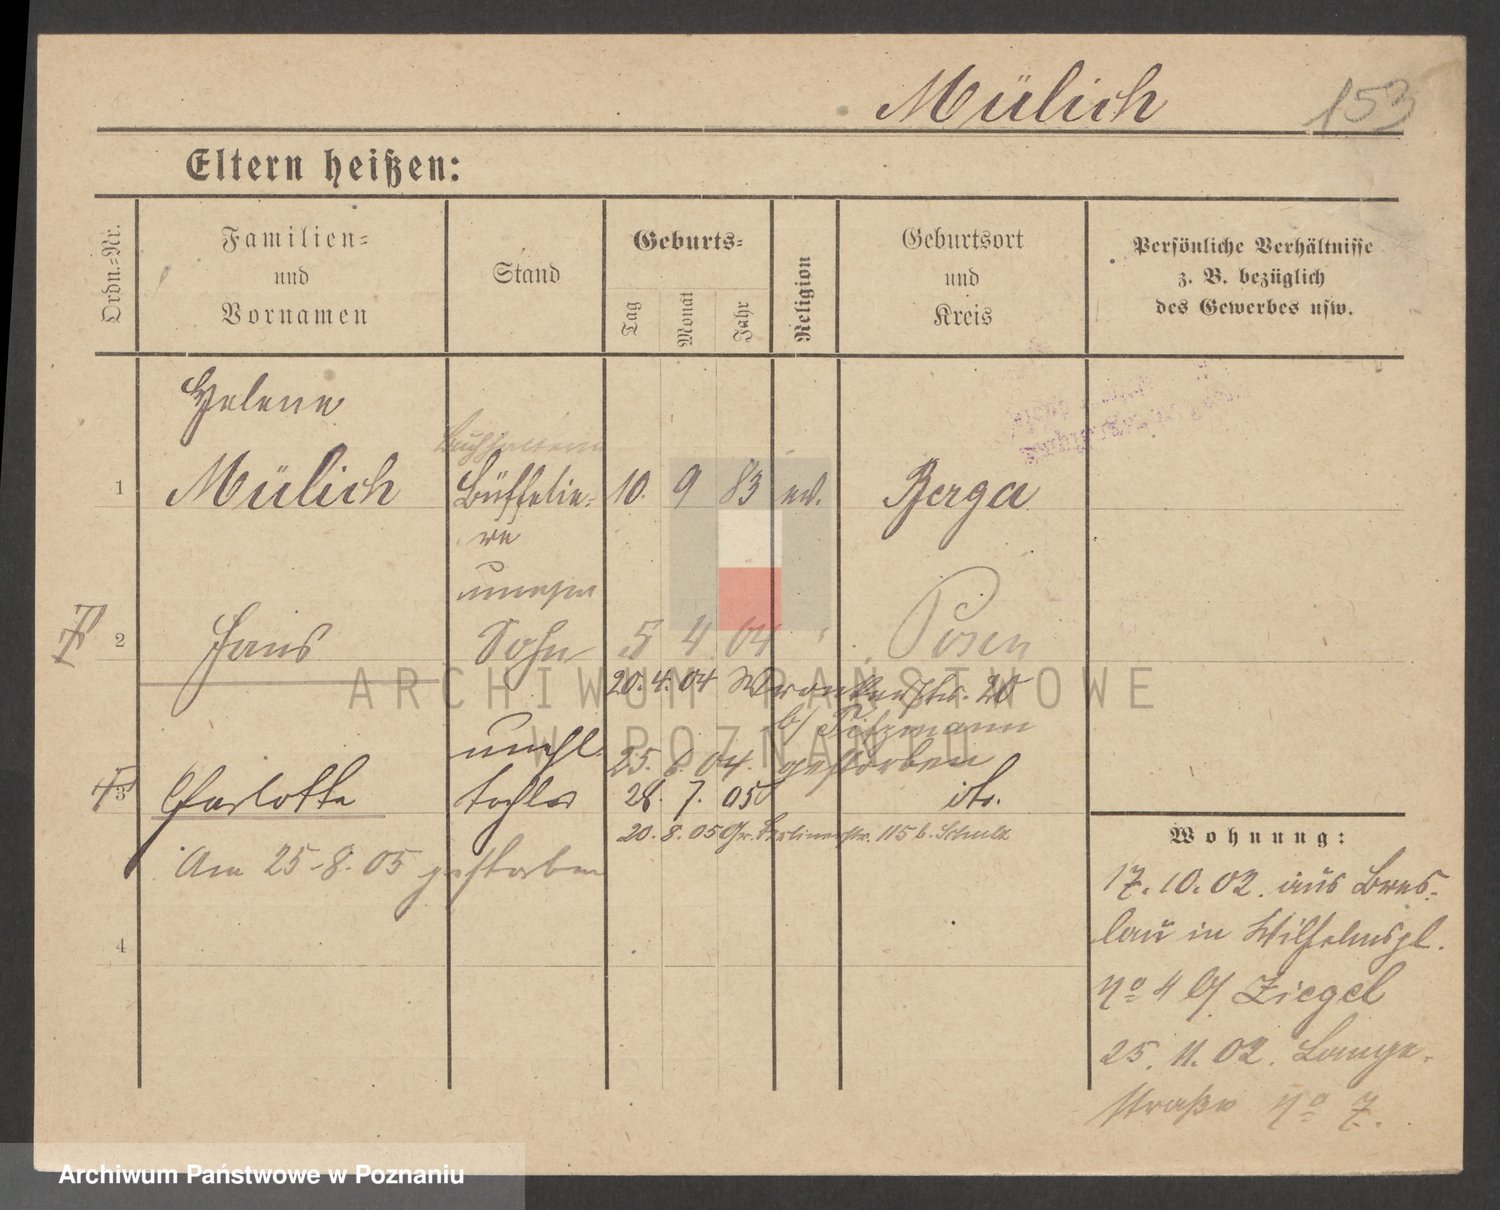 Mülich 153
Eltern heißen:
Ordn.-Nr.
Familien-
und
Vornamen
Stand
Geburts-
Tag
Monat
Jahr
Religion
Geburtsort
und
Kreis
Persönliche Verhältnisse
z. B. bezüglich
des Gewerbes usw.
Helene
1 Mülich Büffetie- 10. 9 83 ev. Berga
re
unehel
2 Hans Sohn 5 4 04 " Posen
20. 4. 04 Wronkerstr. 20
b/
unehl. 25. 6. 04. gestorben
3 Charlotte Tochter 28. 7. 05 do.
20. 8. 05 Gr. Berlinerstr. 115 b. Schulz
Am 25-8. 05 gestorben
4
Wohnung:
17. 10. 02. aus Bres-
lau in Wilhelmspl.
No 4 b/ Ziegel
25. 11. 02. Lange-
straße No 7.
ARCHIWUM PAŃSTWOWE
W POZNANIU
Archiwum Państwowe w Poznaniu